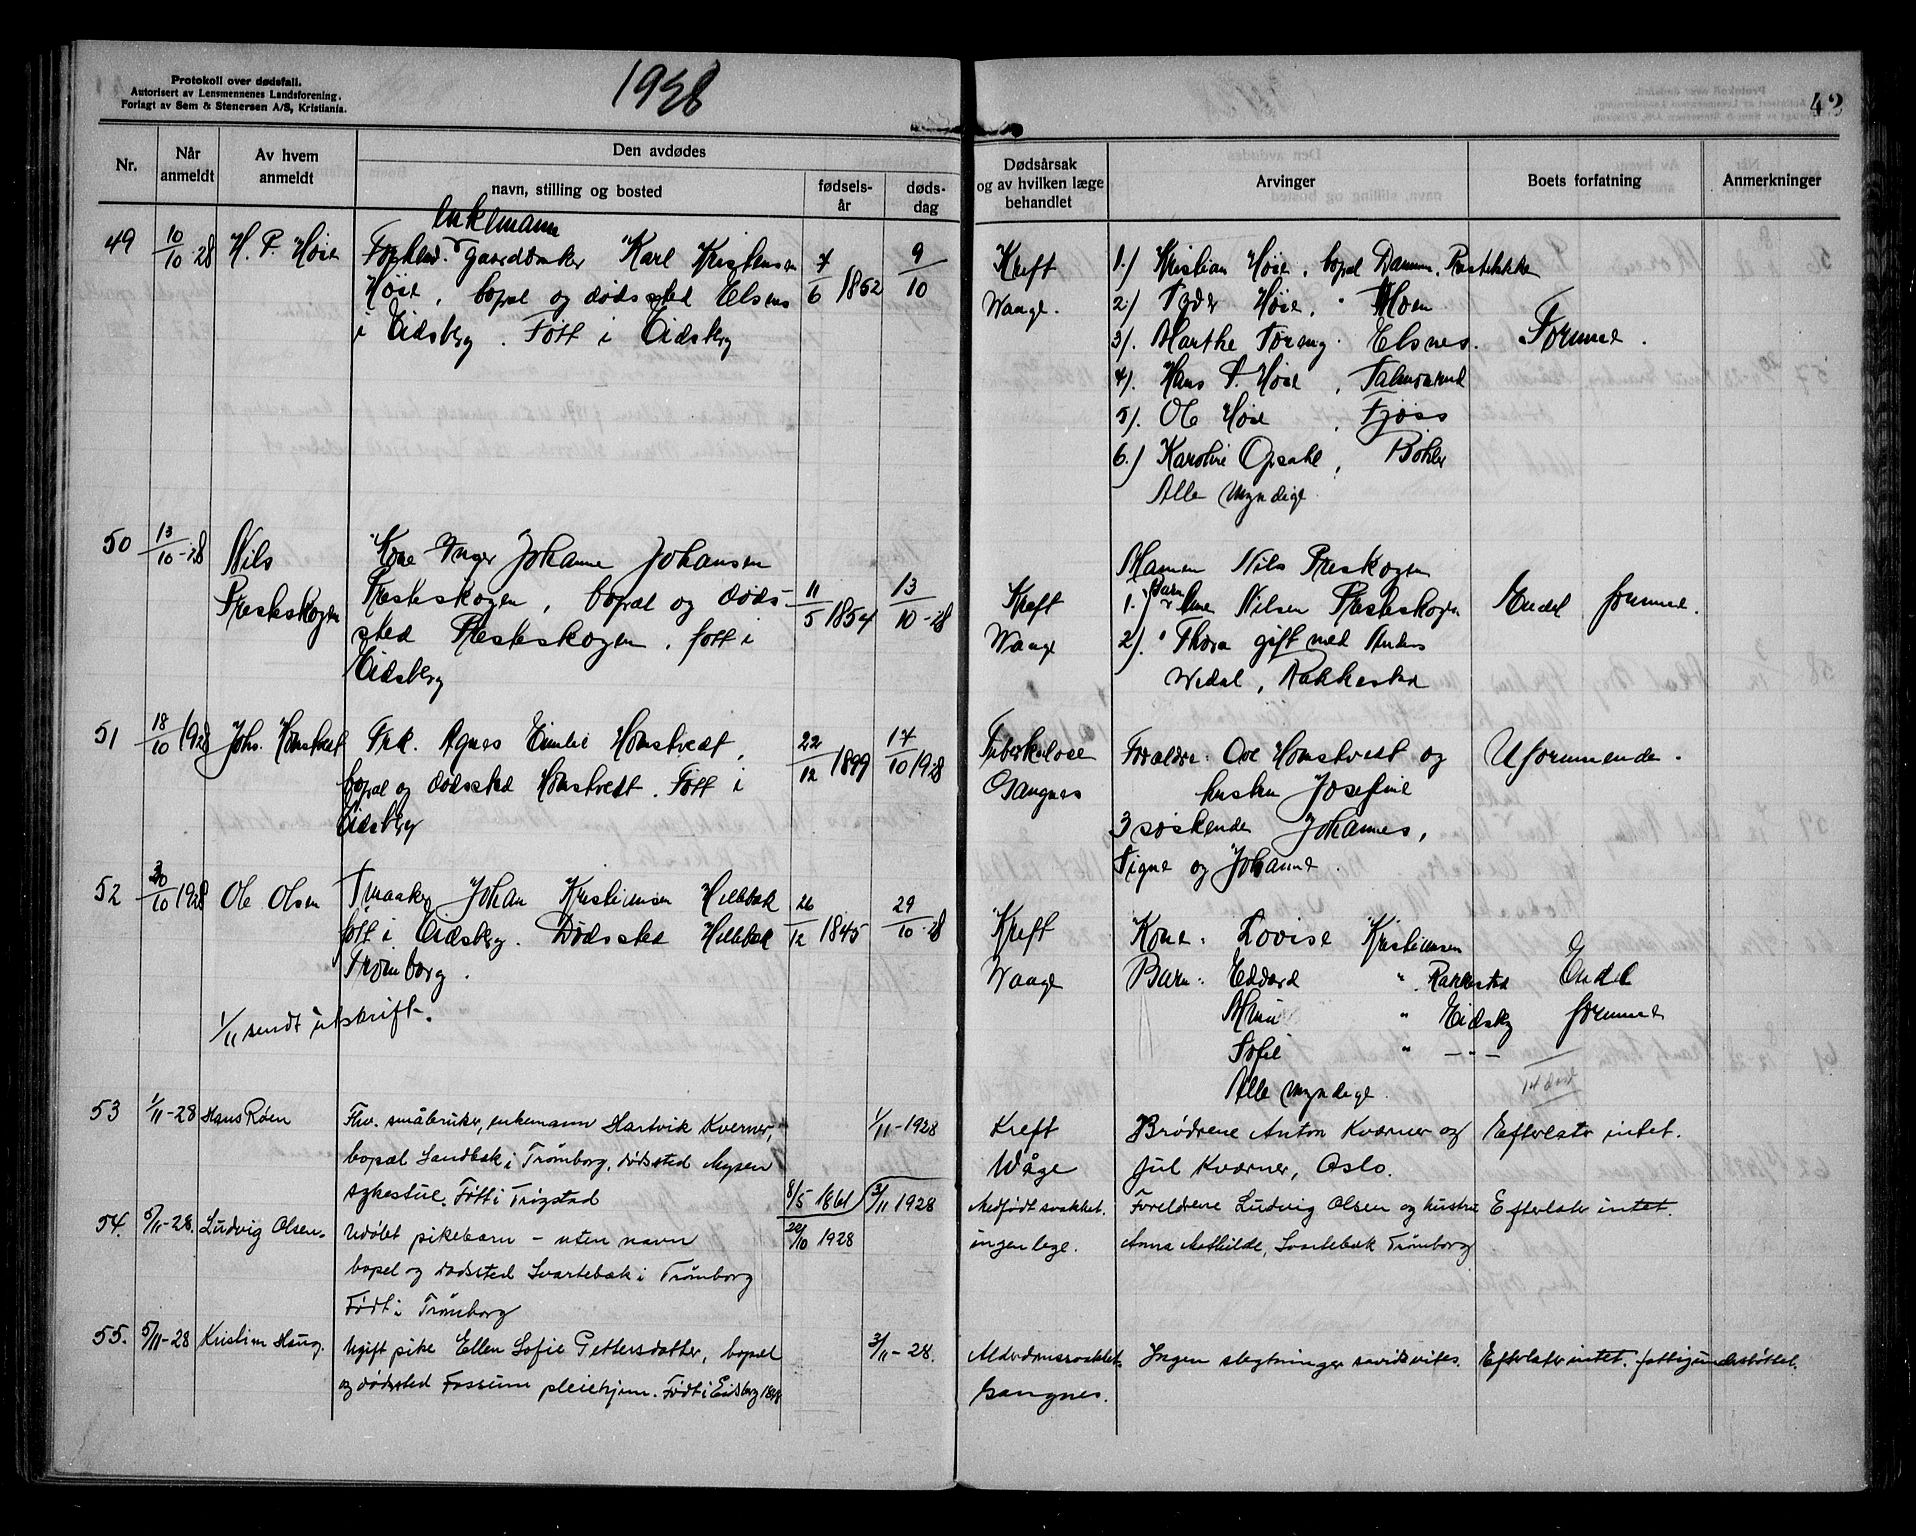 Protokoll over dødsfall.
Autorisert av Lensmennenes Landsforening.
Forlagt av Sem & Stenersen A/S, Kristiania.
1928
42
Nr.
Når anmeldt
Av hvem anmeldt
Den avdødes
navn, stilling og bosted
fødsels-år
døds-dag
Dødsårsak og av hvilken læge behandlet
Arvinger
Boets forfatning
Anmerkninger
49 10/10 28 H. P. Høie
enkemann
gaardbruker Karl Kristensen
Høie, bopæl og dødssted Elsnes
i Eidsberg. Føtt i Eidsberg
7/6 1862 9/10
Kreft
Waage.
1.) Kristian Høie, bopæl Damm,
2.) Høie, " Moen
3). Marthe Elsnes.
4). Hans P. Høie,
5). Ole Høie,
6.) Karoline Opsahl, Bøhler
Alle myndige.
Formue.
50 13/10-28 Nils
Presteskogen
Kone Inger Johanne Johansen
Presteskogen, bopæl og døds-
sted Presteskogen, føtt i
Eidsberg
11/5 1854 13/10-28
Kreft
Waage
Mannen Nils Preskogen
1. Barn Nilsen Presteskogen
2). " Thora gift med Anders
Wedal, Rakkestad
Endel formue.
51 18/10 1928 Johs. Homstvedt
Frk. Agnes Emilie Homstvedt,
bopæl og dødssted Homstvedt. Føtt i
Eidsberg
22/12 1899 17/10 1928
Tuberkulose
Gangnes
Foreldre: Ole Homstvedt og
hustru Josefine
3 søskende Johannes,
Signe og Johanne.
Uformuende.
52 30/10 1928 Ole Olsen
Smaabr. Johan Kristiansen Hillebæk
født i Eidsberg. Dødssted Hillebæk
Trømborg.
26/12 1845 29/10-28
Kreft
Waage
Kone: Lovise Kristiansen
Barn: Edvard " Rakkestad
" Eidsbg
Sofie " -"-
Alle myndige.
Endel
formue
1/11 sendt utskrift.
53 1/11-28 Hans Røen
Fhv. småbruker, enkemann Hartvik Kverner,
bopæl Sandbæk i Trømborg, dødssted Mysen
sykestue. Født i Trøgstad
8/5 1861 1/11-1928
Kreft
Wåge
Brødrene Anton Kværner og
Jul Kværner, Oslo.
Efterlater intet.
54. 5/11-28. Ludvig Olsen.
Udøbt pikebarn - uten navn
bopel og dødsted Svartebæk i Trømborg
Født i Trømborg
22/10 1928 3/11 1928
Medfødt svakhet.
ingen lege.
Foreldrene Ludvig Olsen og hustru
Anna Mathilde, Svartebæk Trømborg
Efterlater intet.
55. 5/11-28 Kristian Haug.
Ugift pike Ellen Sofie Pettersdatter, bopæl
og dødssted Fossum pleiehjem. Født i Eidsberg
3/11-28.
Alderdomssvakhet
Gangnes.
Ingen slegtninger såvidt vites.
Efterlater intet. fattigunderstøttet.